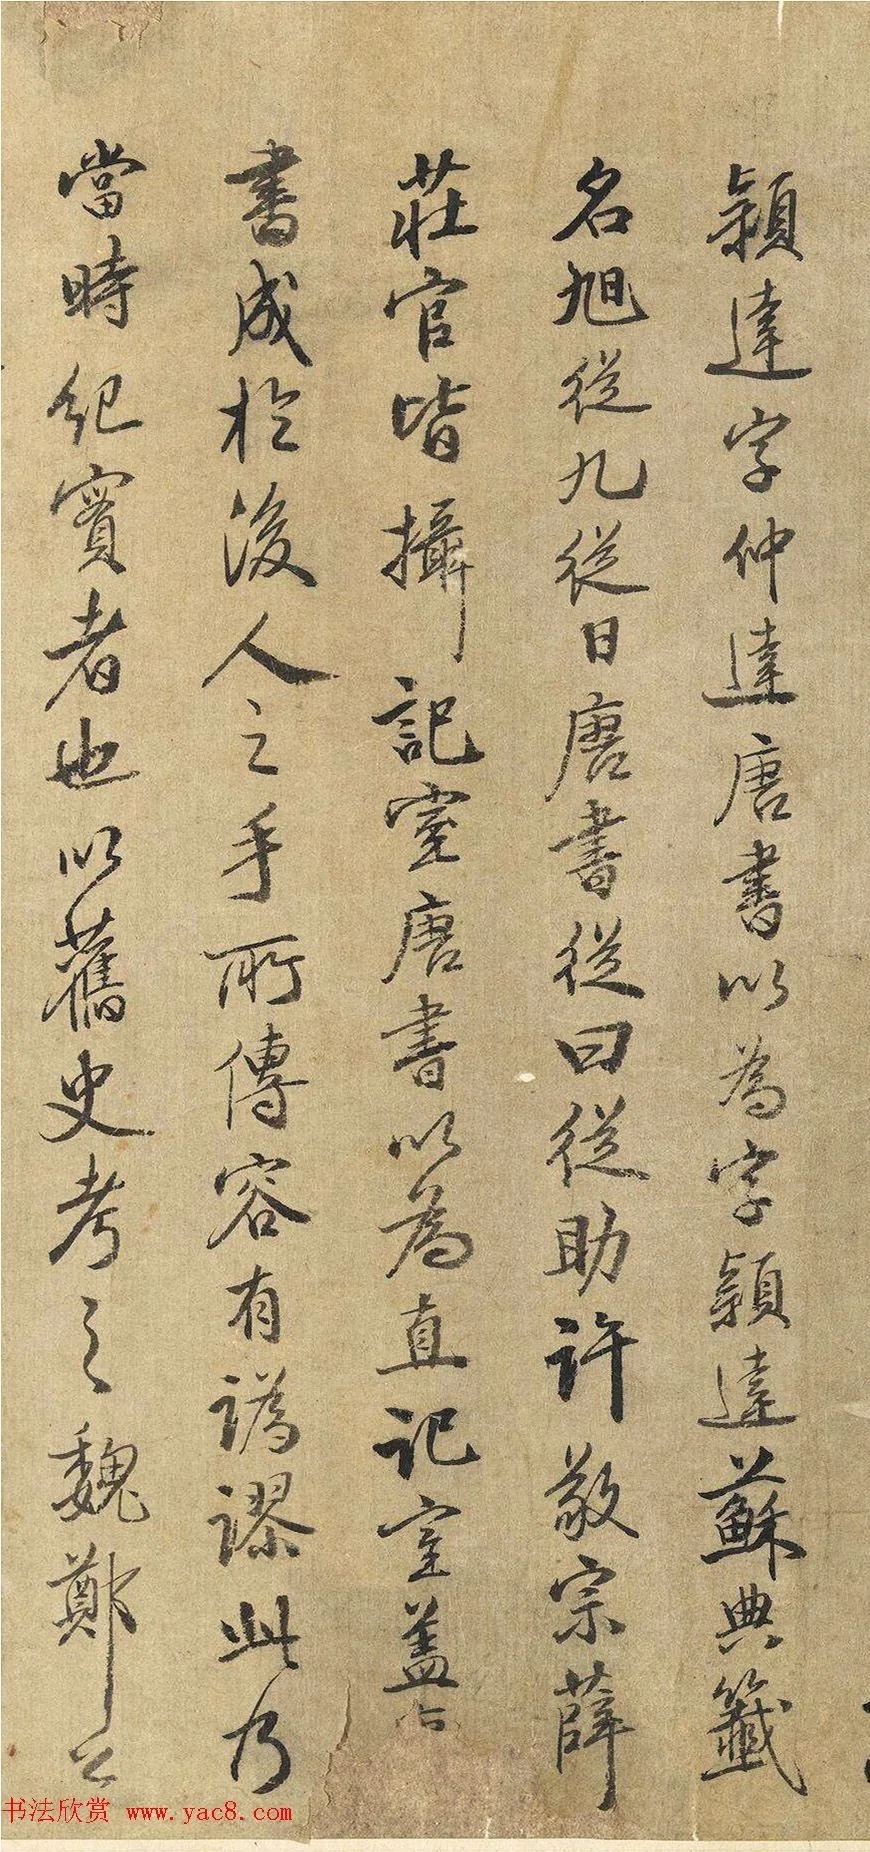 穎達字仲達唐書以為字穎達蘇典籤
名旭從九從日唐書從曰從助許敬宗薛
莊官皆攝記室唐書以為直記室蓋
書成於後人之手所傳容有譌謬此乃
當時紀實者也以舊史考之魏鄭公
书法欣赏 www.yac8.com